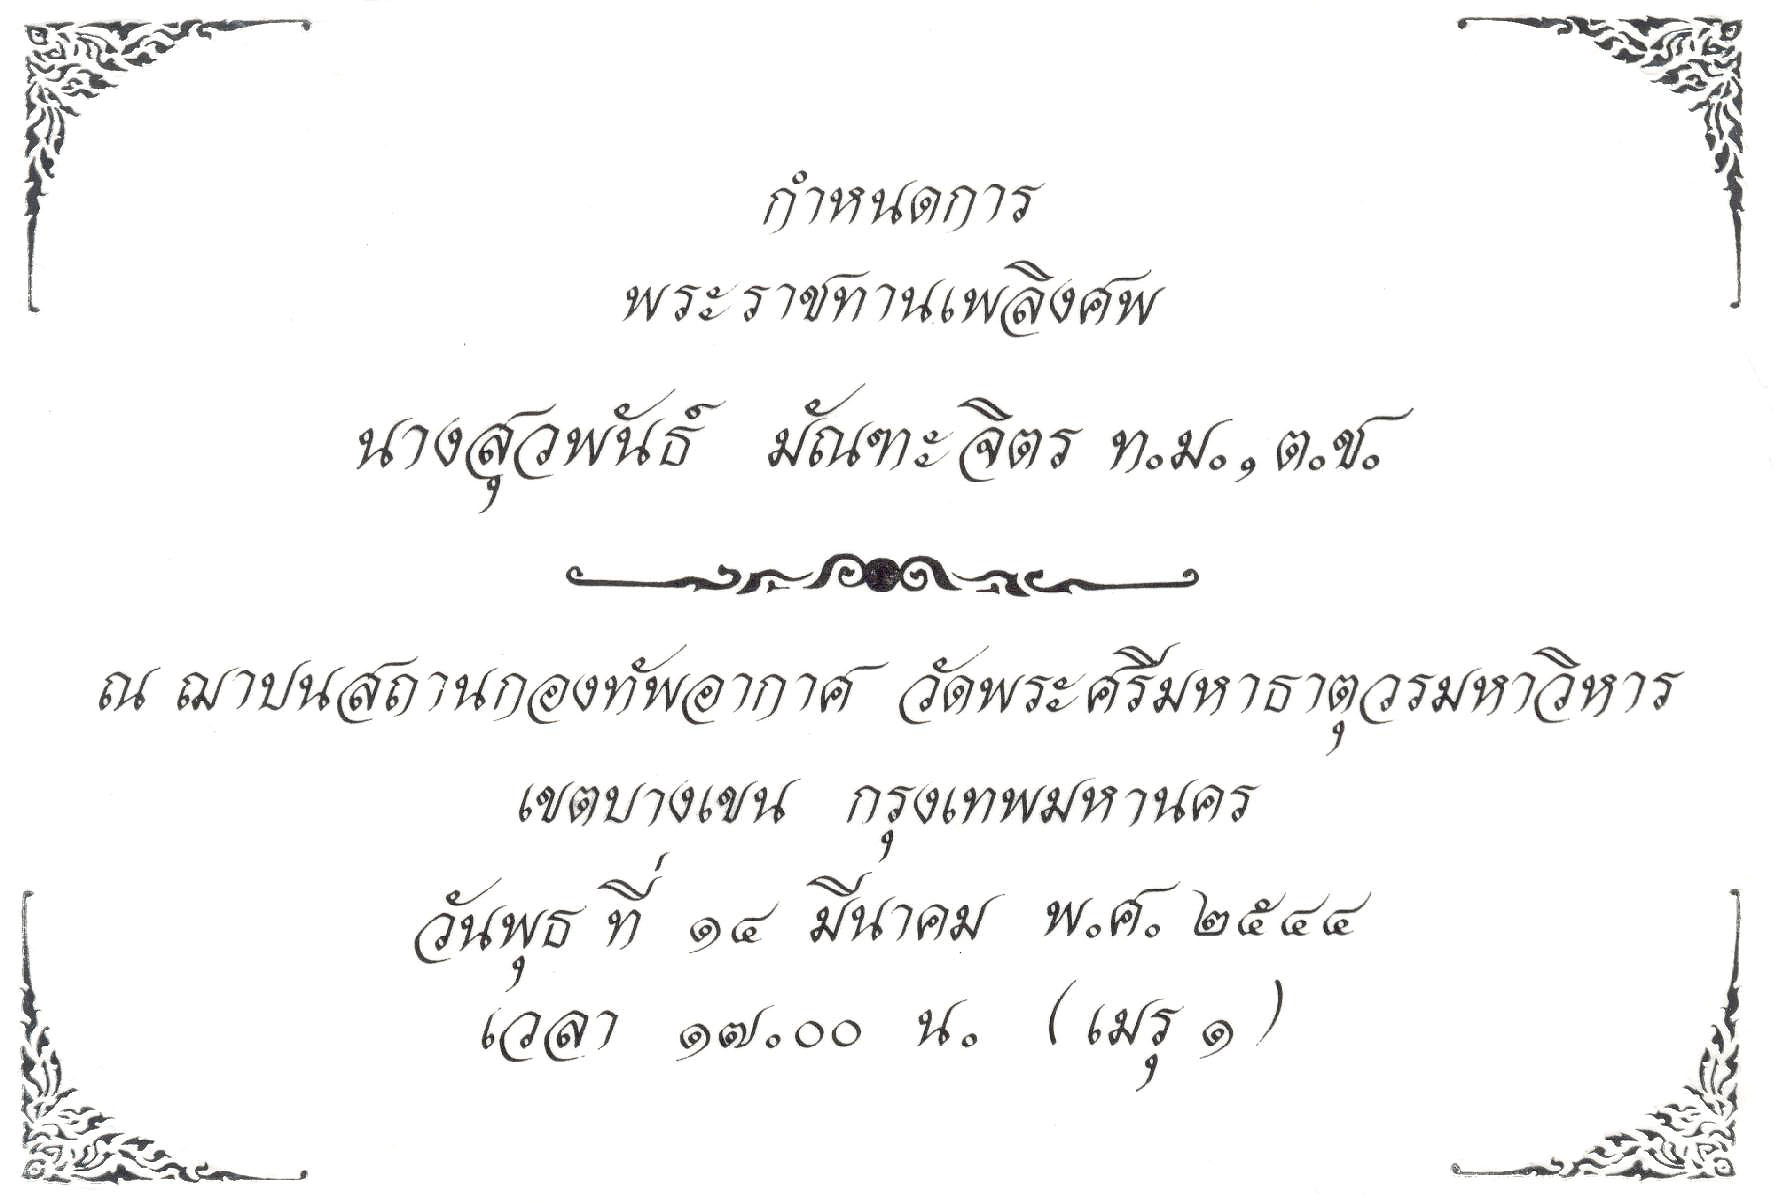 กำหนดการ
พระราชทานเพลิงศพ
นางสุวพันธ์ มัณฑะจิตร ท.ม., ต.ช.
ณ ฌาปนสถานกองทัพอากาศ วัดพระศรีมหาธาตุวรมหาวิหาร
เขตบางเขน กรุงเทพมหานคร
วันพุธ ที่ ๑๔ มีนาคม พ.ศ. ๒๕๔๔
เวลา ๑๗.๐๐ น. (เมรุ ๑)